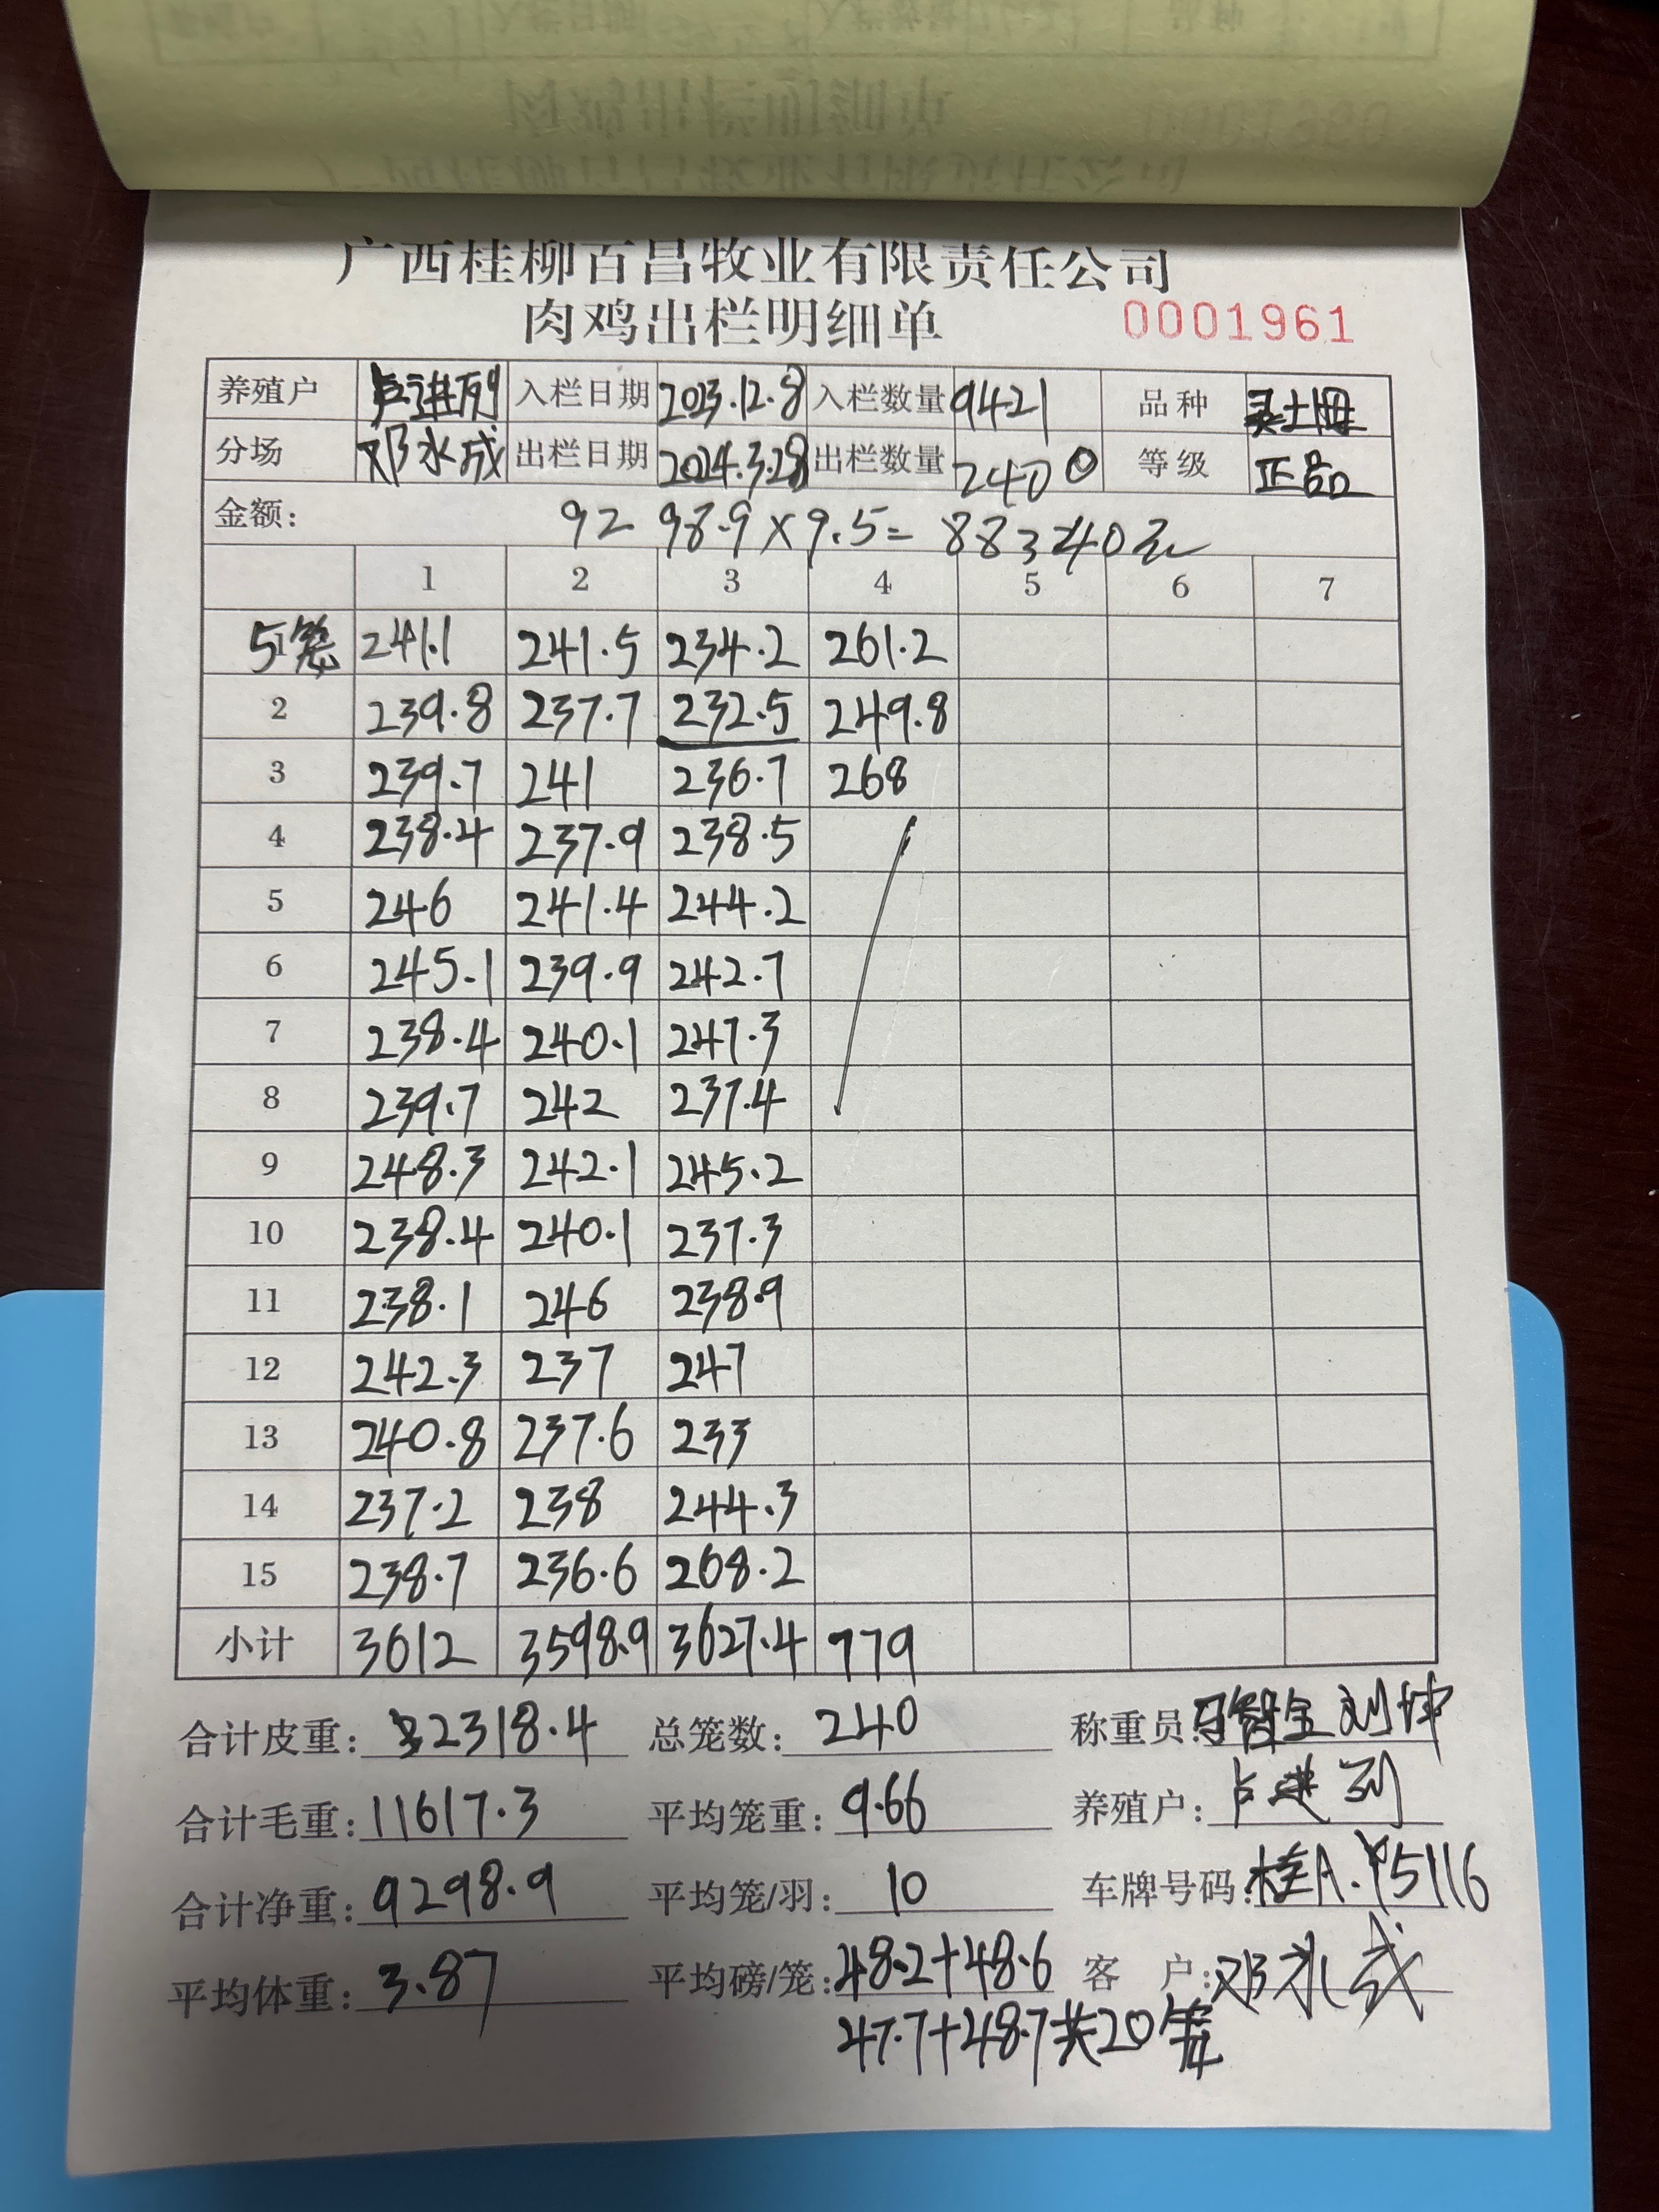 广西桂柳百昌牧业有限责任公司
肉鸡出栏明细单 0001961
养殖户 卢进列 入栏日期 2023.12.8 入栏数量 9421 品种 灵土母
分场 邓永成 出栏日期 2024.3.28 出栏数量 2400 等级 正品
金额: 9298.9×9.5=88340元
1 2 3 4 5 6 7
5笼 241.1 241.5 234.2 261.2
2 239.8 237.7 232.5 249.8
3 239.7 241 236.7 268
4 238.4 237.9 238.5
5 246 241.4 244.2
6 245.1 239.9 242.7
7 238.4 240.1 247.3
8 239.7 242 237.4
9 248.3 242.1 245.2
10 238.4 240.1 237.3
11 238.1 246 238.9
12 242.3 237 247
13 240.8 237.6 233
14 237.2 238 244.3
15 238.7 236.6 268.2
小计 3612 3598.9 3627.4 779
合计皮重: 2318.4 总笼数: 240 称重员: 刘坤
合计毛重: 11617.3 平均笼重: 9.66 养殖户: 卢进列
合计净重: 9298.9 平均笼/羽: 10 车牌号码: 桂A.Y5116
平均体重: 3.87 平均磅/笼: 48.2+48.6 客户: 邓永成
47.7+48.7共20笼